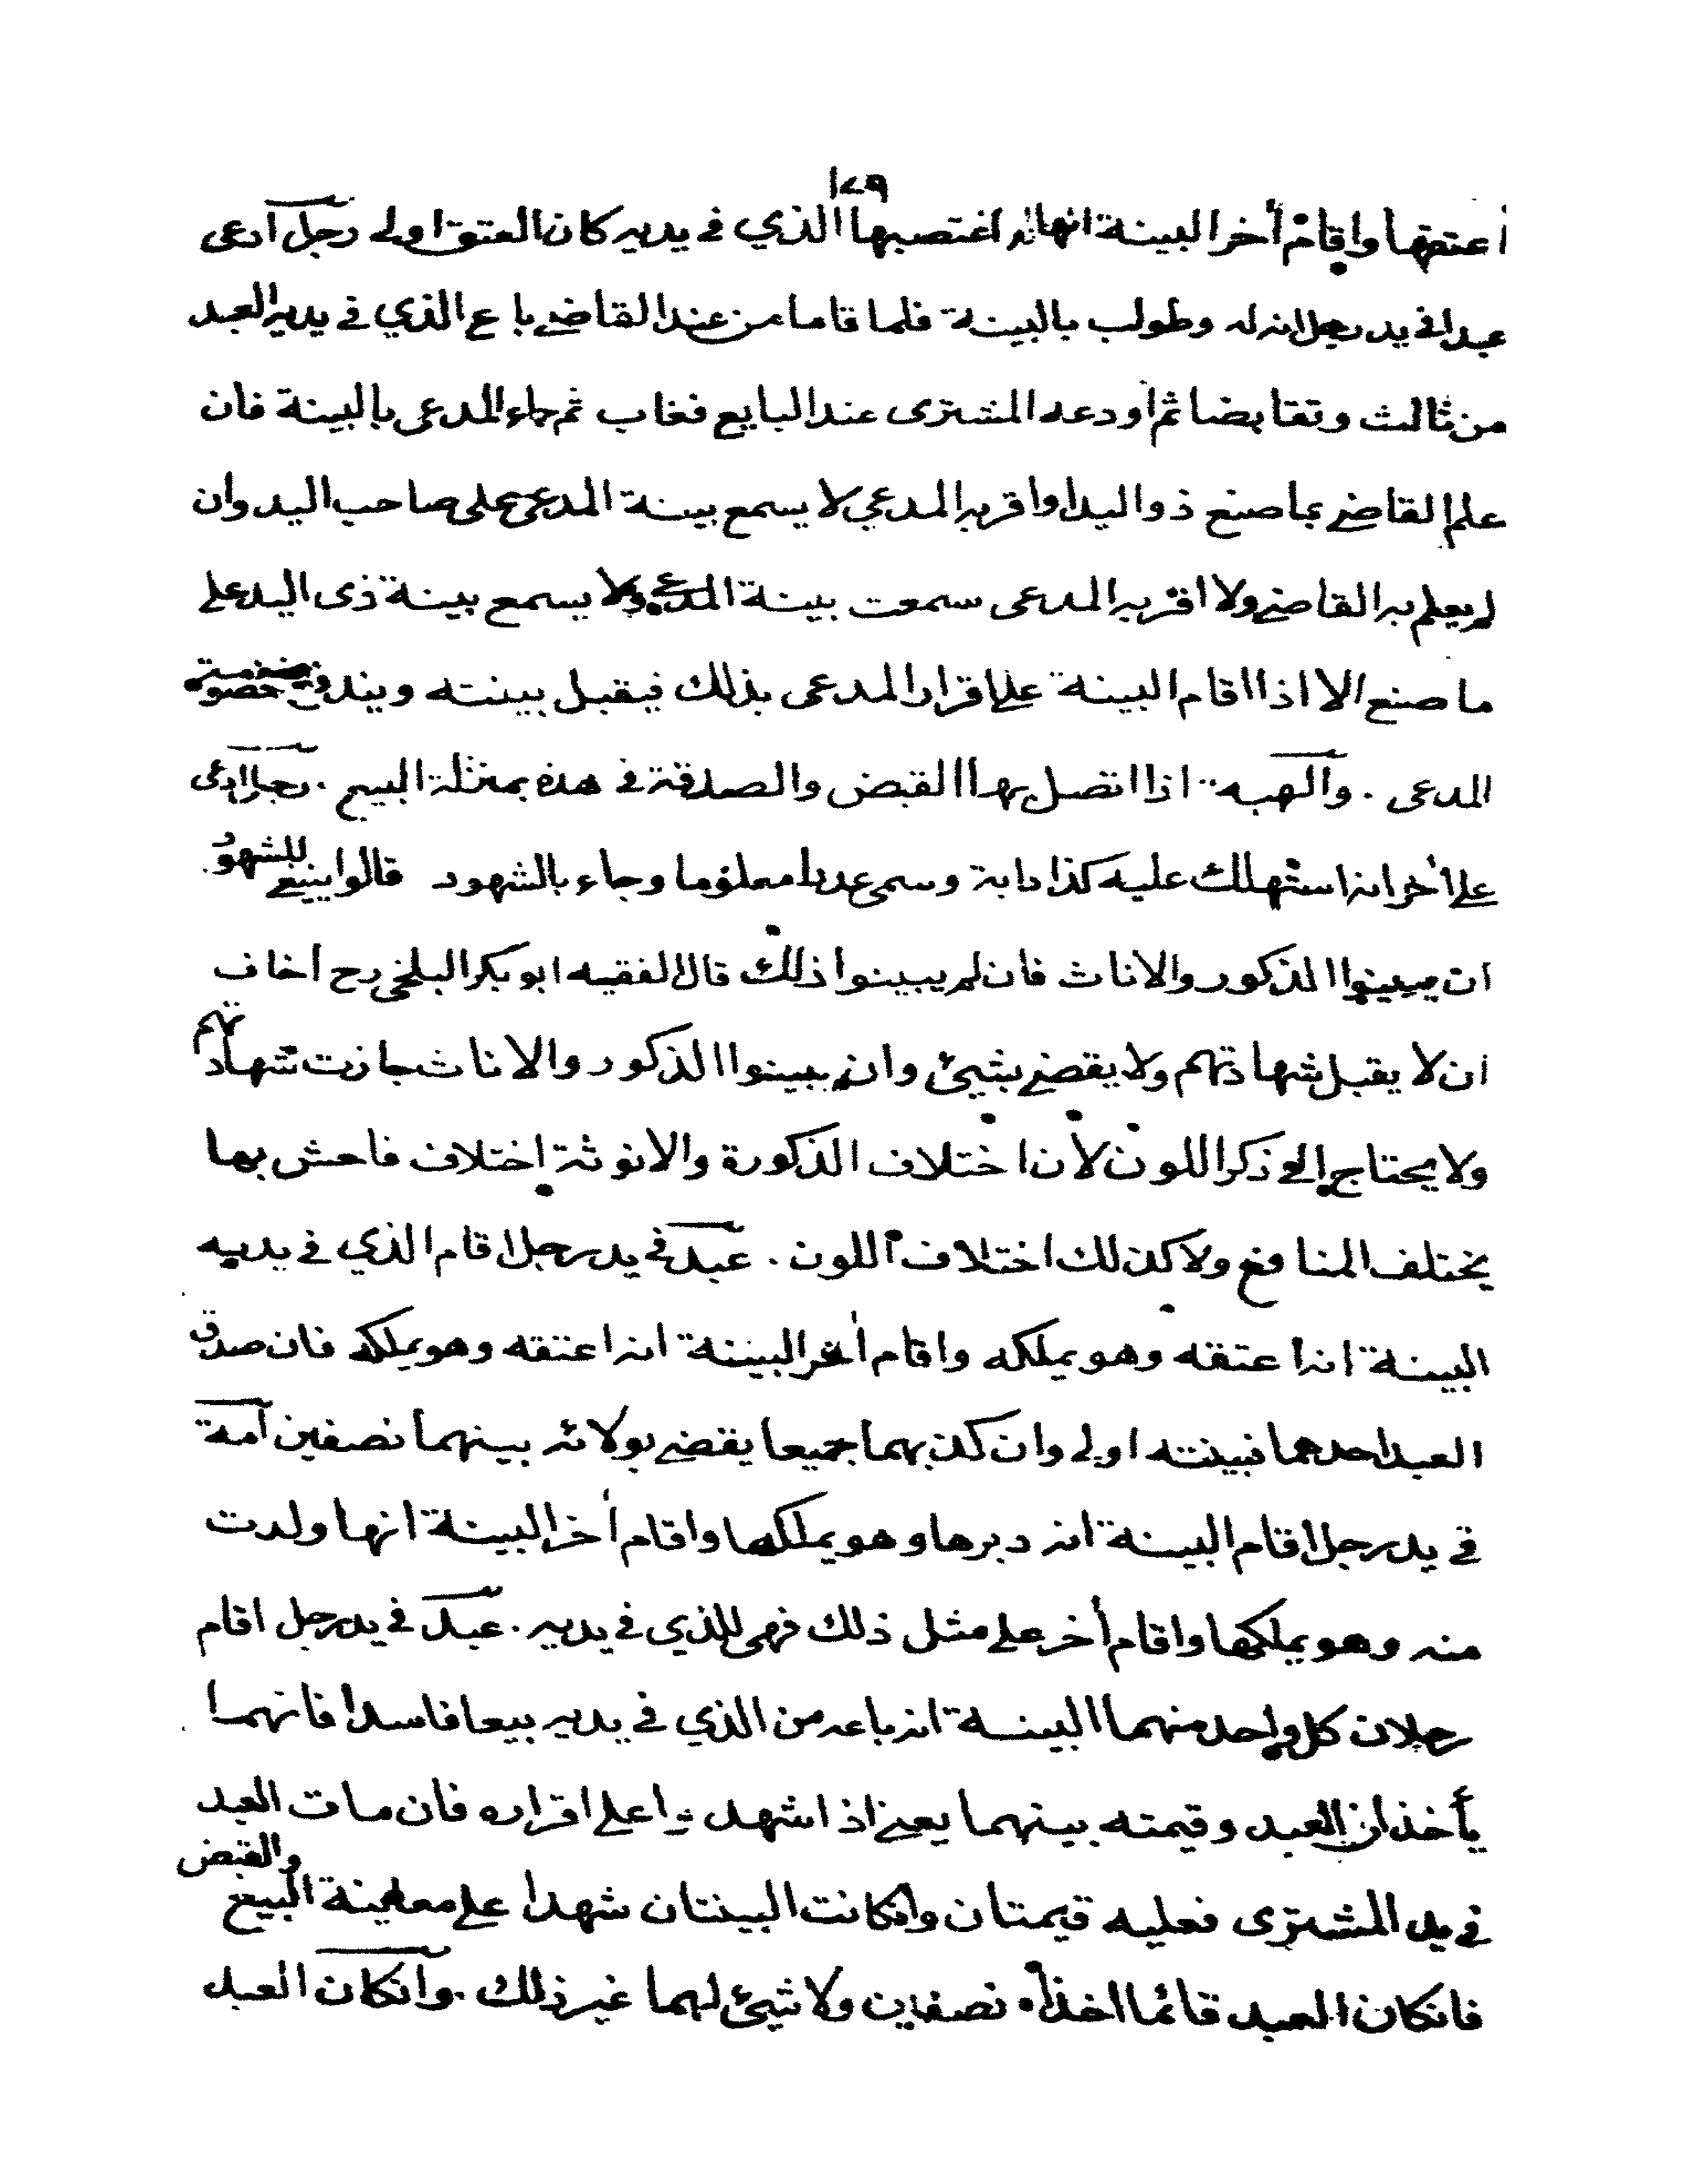 ١٧٩
اعتقها واقام أخر البينة انها له اغتصبها الذي في يديه كان العتق اولى رجل ادعى
عبدا في يد رجل انه له وطولب بالبينة فلما قاما من عند القاضي باع الذي في يديه العبد
من ثالث وتقابضا ثم أودعه المشترى عند البايع فغاب ثم جاء المدعى بالبينة فان
علم القاضي بما صنع ذو اليد او اقر به المدعي لا يسمع بينة المدعى على صاحب اليد وان
لم يعلم به القاضي ولا اقر به المدعى سمعت بينة المدعي ولا يسمع بينة ذى اليد على
ما صنع الا اذا اقام البينة على اقرار المدعى بذلك فيقبل بينته ويندفع خصومته
المدعى . والهبه اذا اتصل بها القبض والصدقة في هذه بمنزلة البيع . رجل ادعى
على أخر انه استهلك عليه كذا دابة وسمى عددا معلوما وجاء بالشهود قالوا ينبغي للشهود
ان يبينوا الذكور والاناث فان لم يبينوا ذلك قال الفقيه ابو بكر البلخى رح أخاف
ان لا يقبل شهادتهم ولا يقضي بشيئ وان يبينوا الذكور والاناث جازت شهادتهم
ولا يحتاج الى ذكر اللون لأن اختلاف الذكورة والانوثة اختلاف فاحش بها
يختلف المنافع ولا كذلك اختلاف اللون . عبد في يد رجل اقام الذي في يديه
البينة انه اعتقه وهو يملكه واقام أخر البينة انه اعتقه وهو يملكه فان صدق
العبد احدهما فبينته اولى وان كذبهما جميعا يقضي بولائه بينهما نصفين أمة
في يد رجل اقام البينة انه دبرها وهو يملكها واقام أخر البينة انها ولدت
منه وهو يملكها واقام أخر على مثل ذلك فهى للذي في يديه . عبد في يد رجل اقام
رجلان كل واحد منهما البينة انه باعه من الذي في يديه بيعا فاسدا فانهما
يأخذان العبد وقيمته بينهما يعني اذا شهدوا على اقراره فان مات العبد
في يد المشترى فعليه قيمتان وانكانت البينتان شهدا على معاينة البيع والقبض
فانكان العبد قائما اخذاه نصفين ولا شيئ لهما غير ذلك . وانكان العبد